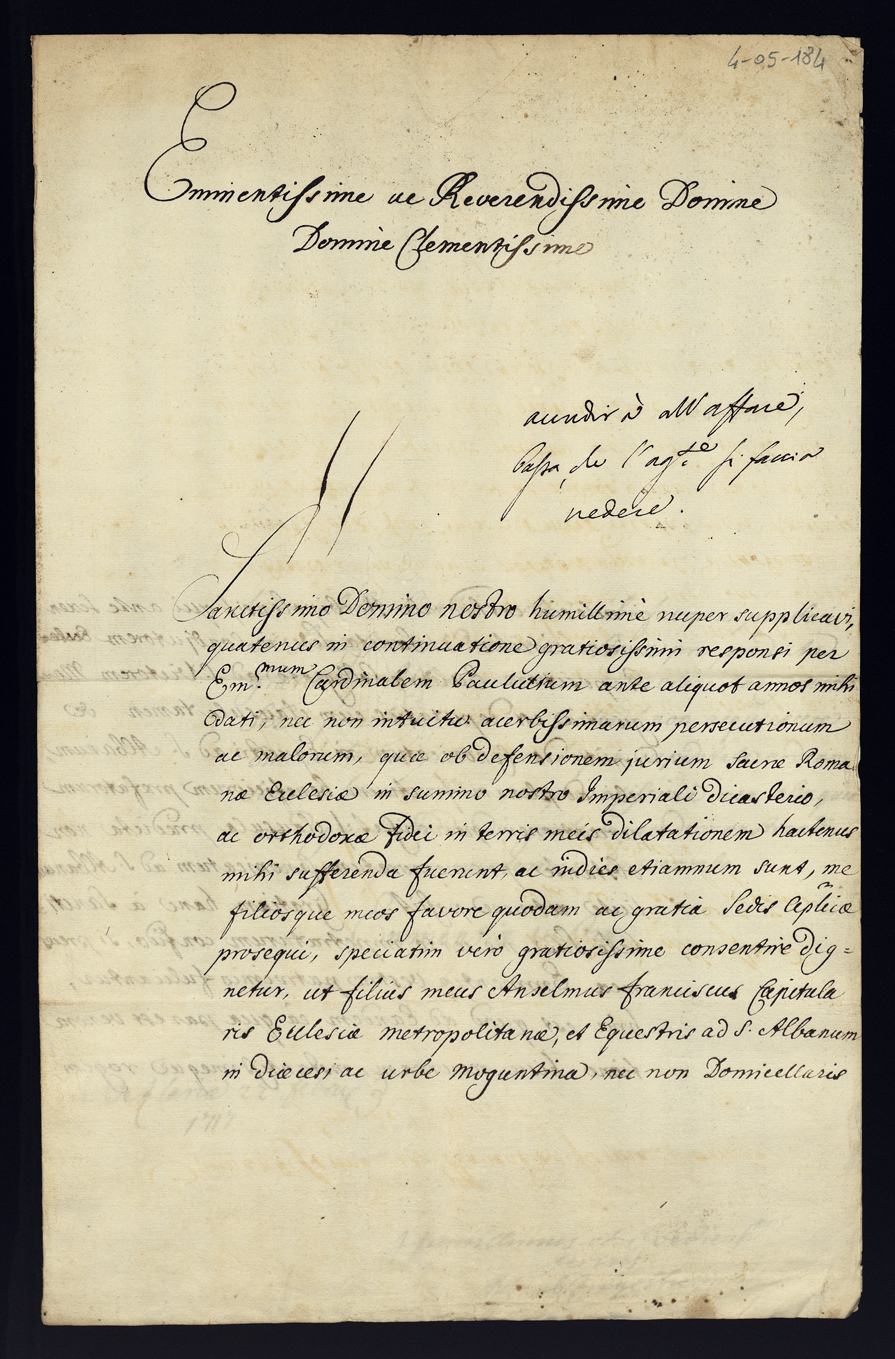 4-05-184
Eminentissime ac Reverendissime Domine
Domine Clementissime
accudirà all'affare,
basta che l'ag.te si faccia
vedere.
Sanctissimo Domino nostro humillimè nuper supplicavi,
quatenus in continuatione gratiosissimi responsi per
Em.mum Cardinalem Paulutium ante aliquot annos mihi
dati, nec non intuitu acerbissimarum persecutionum
ac malorum, quæ ob defensionem jurium sacræ Roma
næ Ecclesiæ in summo nostro Imperiali dicasterio,
ac orthodoxæ Fidei in terris meis dilatationem hactenus
mihi sufferenda fuerunt, ac indies etiamnum sunt, me
filiosque meos favore quodam ac gratiâ Sedis Aplicæ
prosequi, speciatim verò gratiosissime consentire dig=
netur, ut filius meus Anselmus Franciscus Capitula
ris Ecclesiæ metropolitanæ, et Equestris ad S. Albanum
in diœcesi ac urbe Moguntina, nec non Domicellaris